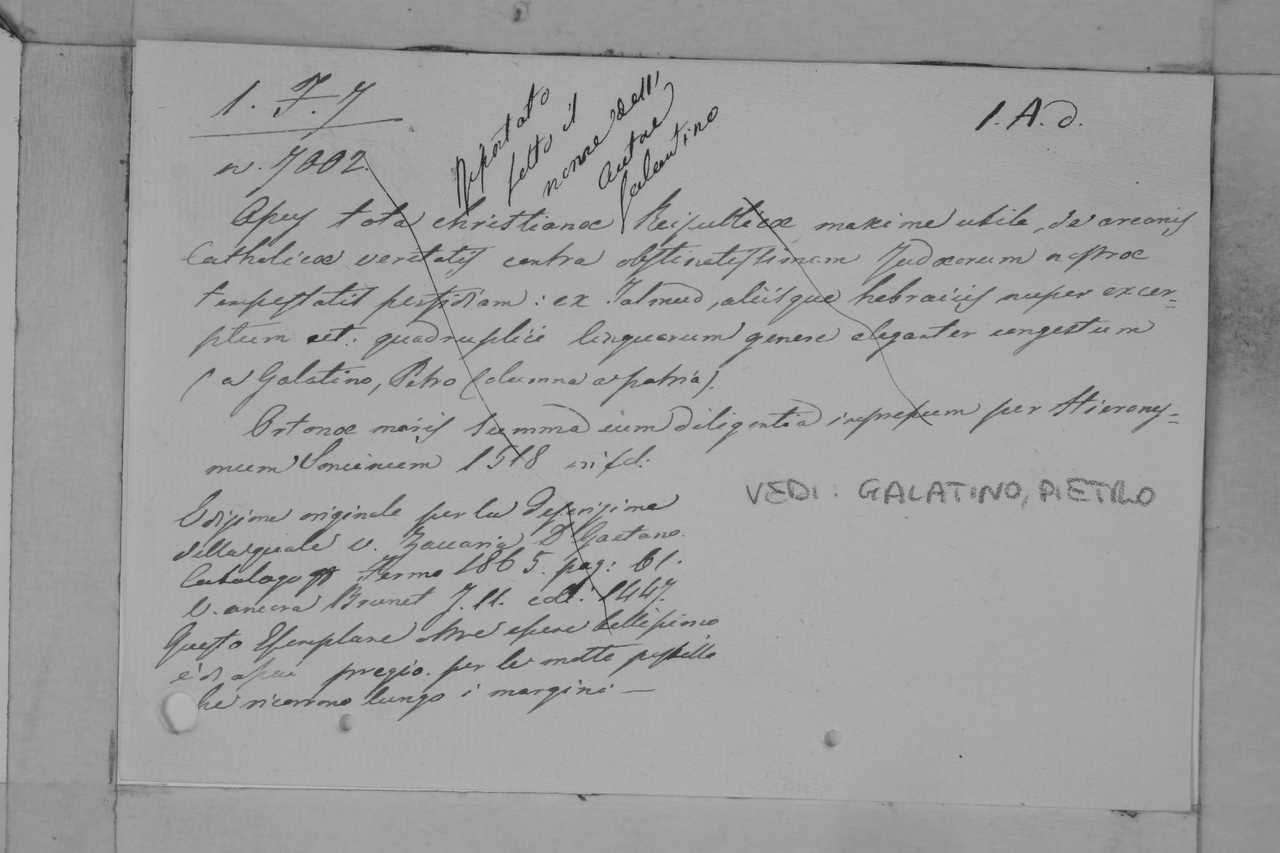 1. F. 7
n. 7002.
Riportato
sotto il
nome dell'
autore
Galantino
1. A. d.
Opus tota christianae Reipublicae maxime utile, de arcanis
Catholicae veritatis contra obstinatissimam Judaeorum nostrae
tempestatis perfidiam: ex Talmud, aliisque hebraicis nuper excer-
ptum et. quadruplici linguarum genere eleganter congestum
(a Galatino, Petro Columna a patria).
Ortonae maris summa cum diligentia impressum per Hierony-
mum Soncinum 1518 in fol:
Edizione originale per la descrizione
della quale v. Zaccaria D. Gaetano.
Catalogo Fermo 1865. pag: 61.
V. ancora Brunet T. II. col: 1447.
Questo Esemplare oltre essere bellissimo
è di assai pregio per le molte postille
che ricorrono lungo i margini —
VEDI: GALATINO, PIETRO